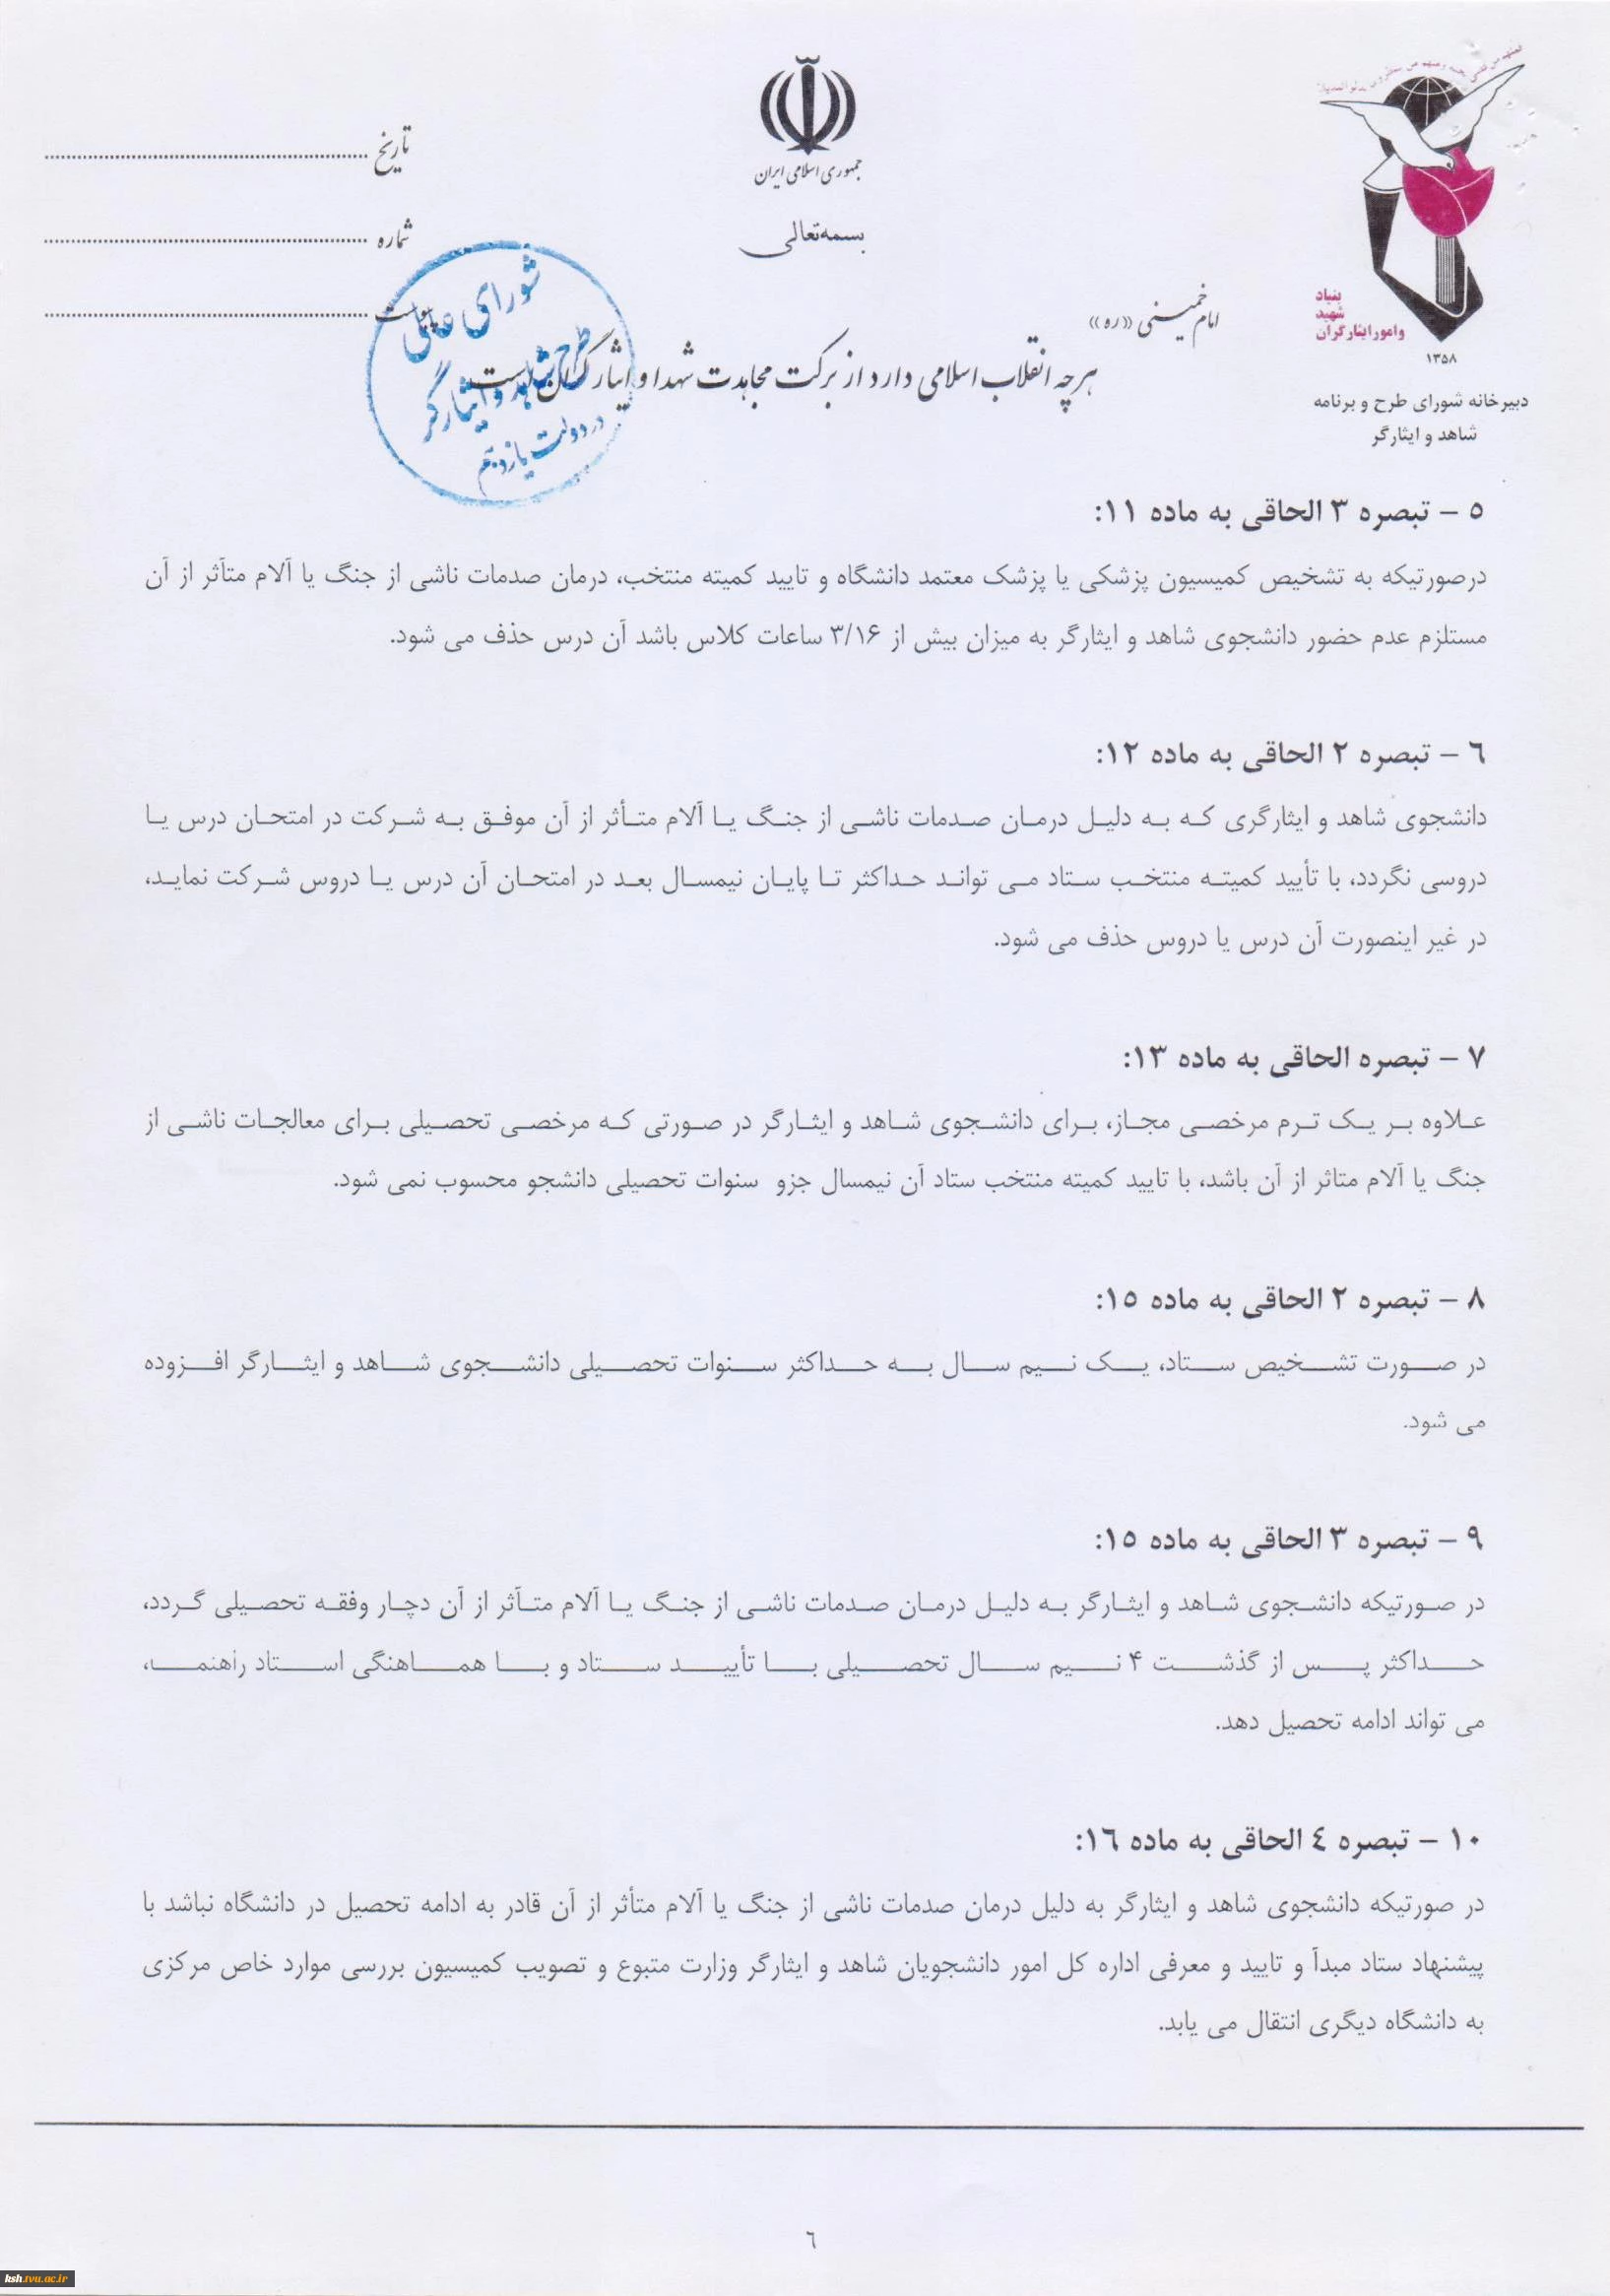 جمهوری اسلامی ایران
بسمه‌تعالی
تاریخ
شماره
پیوست
بنیاد
شهید
وامور ایثارگران
۱۳۵۸
دبیرخانه شورای طرح و برنامه
شاهد و ایثارگر
امام خمینی «ره»
هرچه انقلاب اسلامی دارد از برکت مجاهدت شهدا و ایثارگران است
شورای عالی
طرح شاهد و ایثارگر
در دولت یازدهم
۵ – تبصره ۳ الحاقی به ماده ۱۱:
درصورتیکه به تشخیص کمیسیون پزشکی یا پزشک معتمد دانشگاه و تایید کمیته منتخب، درمان صدمات ناشی از جنگ یا آلام متأثر از آن
مستلزم عدم حضور دانشجوی شاهد و ایثارگر به میزان بیش از ۳/۱۶ ساعات کلاس باشد آن درس حذف می شود.
۶ – تبصره ۲ الحاقی به ماده ۱۲:
دانشجوی شاهد و ایثارگری که به دلیل درمان صدمات ناشی از جنگ یا آلام متأثر از آن موفق به شرکت در امتحان درس یا
دروسی نگردد، با تأیید کمیته منتخب ستاد می تواند حداکثر تا پایان نیمسال بعد در امتحان آن درس یا دروس شرکت نماید،
در غیر اینصورت آن درس یا دروس حذف می شود.
۷ – تبصره الحاقی به ماده ۱۳:
علاوه بر یک ترم مرخصی مجاز، برای دانشجوی شاهد و ایثارگر در صورتی که مرخصی تحصیلی برای معالجات ناشی از
جنگ یا آلام متاثر از آن باشد، با تایید کمیته منتخب ستاد آن نیمسال جزو سنوات تحصیلی دانشجو محسوب نمی شود.
۸ – تبصره ۲ الحاقی به ماده ۱۵:
در صورت تشخیص ستاد، یک نیم سال به حداکثر سنوات تحصیلی دانشجوی شاهد و ایثارگر افزوده
می شود.
۹ – تبصره ۳ الحاقی به ماده ۱۵:
در صورتیکه دانشجوی شاهد و ایثارگر به دلیل درمان صدمات ناشی از جنگ یا آلام متأثر از آن دچار وفقه تحصیلی گردد،
حداکثر پس از گذشت ۴ نیم سال تحصیلی با تأیید ستاد و با هماهنگی استاد راهنما،
می تواند ادامه تحصیل دهد.
۱۰ – تبصره ٤ الحاقی به ماده ۱۶:
در صورتیکه دانشجوی شاهد و ایثارگر به دلیل درمان صدمات ناشی از جنگ یا آلام متأثر از آن قادر به ادامه تحصیل در دانشگاه نباشد با
پیشنهاد ستاد مبدأ و تایید و معرفی اداره کل امور دانشجویان شاهد و ایثارگر وزارت متبوع و تصویب کمیسیون بررسی موارد خاص مرکزی
به دانشگاه دیگری انتقال می یابد.
٦
ksh.tvu.ac.ir